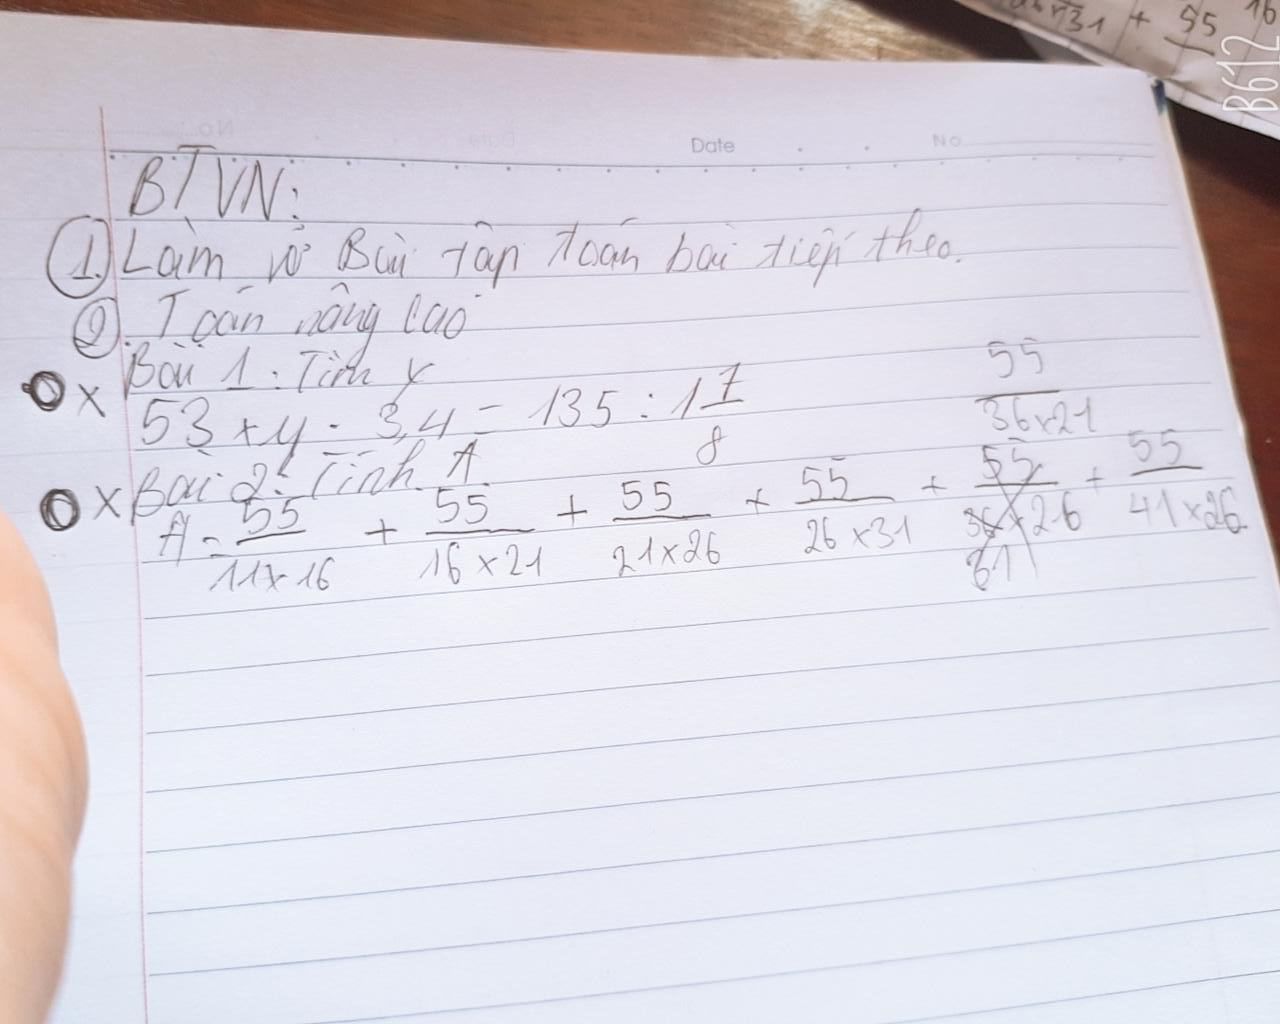 55 16
31 + 55
B612
Date No
BTVN:
1. Làm vở Bài tập toán bài tiếp theo.
2. Toán nâng cao
x Bài 1: Tìm y
53 + y - 3,4 = 135 : 1 7/8
x Bài 2: Tính A
A = 55/11x16 + 55/16x21 + 55/21x26 + 55/26x31 + 55/36x21 + 55/41x26